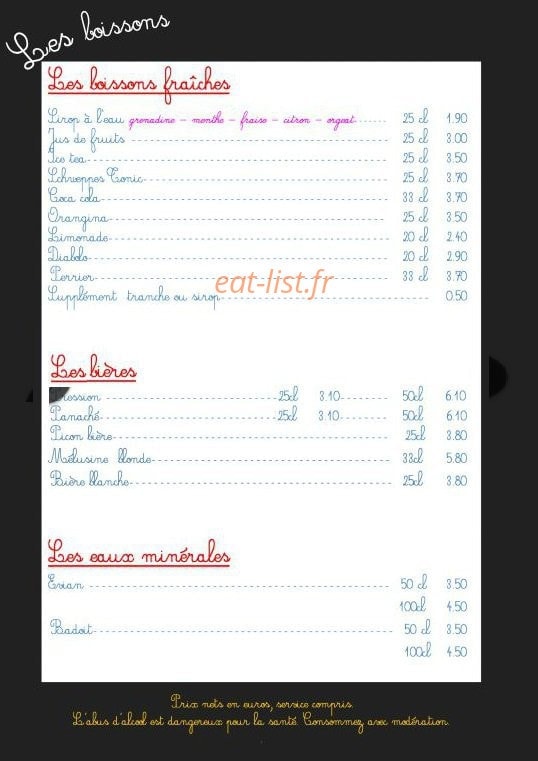 Les boissons
Les boissons fraîches
Sirop à l'eau grenadine - menthe - fraise - citron - orgeat 25 cl 1.90
Jus de fruits 25 cl 3.00
Ice tea 25 cl 3.50
Schweppes Tonic 25 cl 3.70
Coca cola 33 cl 3.70
Orangina 25 cl 3.50
Limonade 20 cl 2.40
Diabolo 20 cl 2.90
Perrier 33 cl 3.70
eat-list.fr
Supplément tranche ou sirop 0.50
Les bières
Pression 25cl 3.10 50cl 6.10
Panaché 25cl 3.10 50cl 6.10
Picon bière 25cl 3.80
Mélusine blonde 33cl 5.80
Bière blanche 25cl 3.80
Les eaux minérales
Evian 50 cl 3.50
100cl 4.50
Badoit 50 cl 3.50
100cl 4.50
Prix nets en euros, service compris.
L'abus d'alcool est dangereux pour la santé. Consommez avec modération.